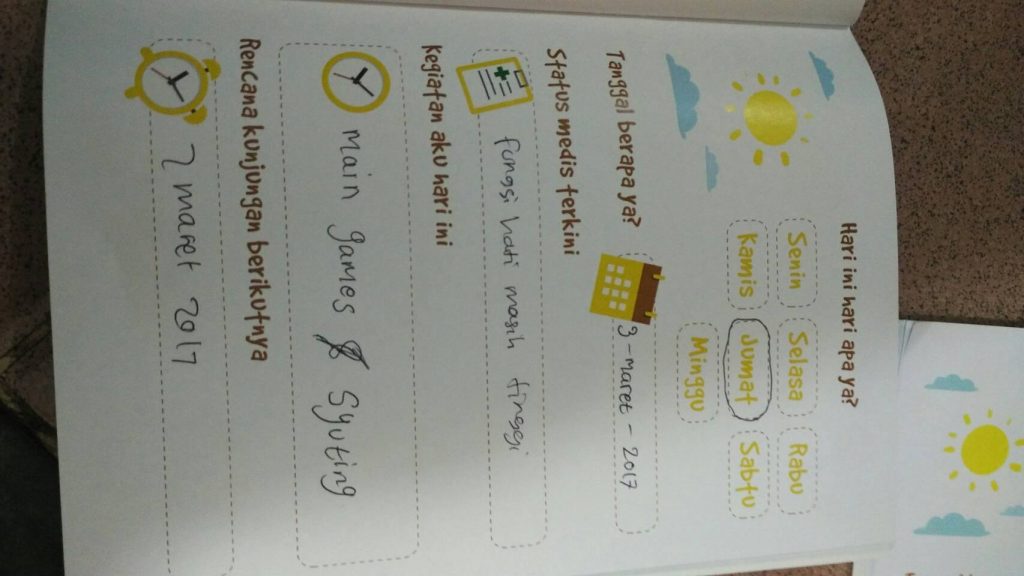 Hari ini hari apa ya?
Senin Selasa Rabu
Kamis Jumat Sabtu
Minggu
Tanggal berapa ya?
3 - maret - 2017
Status medis terkini
fungsi hati masih tinggi
Kegiatan aku hari ini
main games & Syuting
Rencana kunjungan berikutnya
7 maret 2017